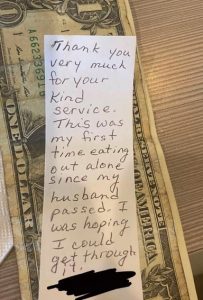 Thank you
very much
for your
kind
service.
This was
my first
time eating
out alone
since my
husband
passed. I
was hoping
I could
get through
it.
1